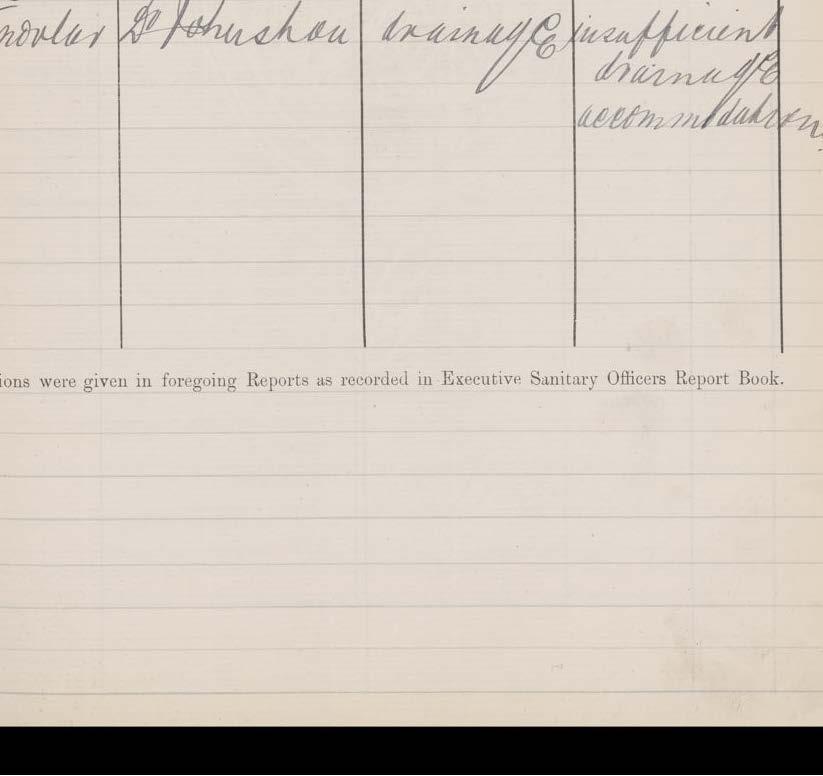 drainage insufficient
drainage
accommodation
ions were given in foregoing Reports as recorded in Executive Sanitary Officers Report Book.